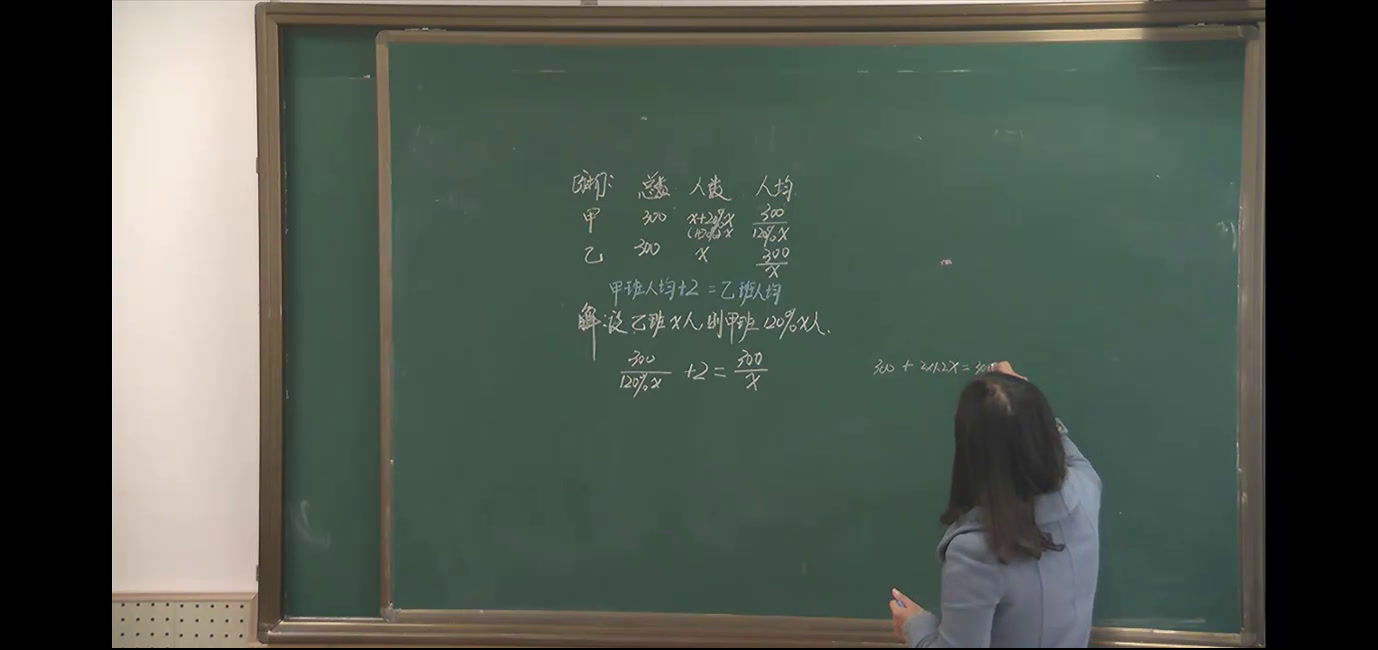 总数 人数 人均
甲 300 x+20%x 300/120%x
(1+20%)x
乙 300 x 300/x
甲班人均+2=乙班人均
解:设乙班x人,则甲班120%x人.
300/120%x +2= 300/x
300+2×1.2x=